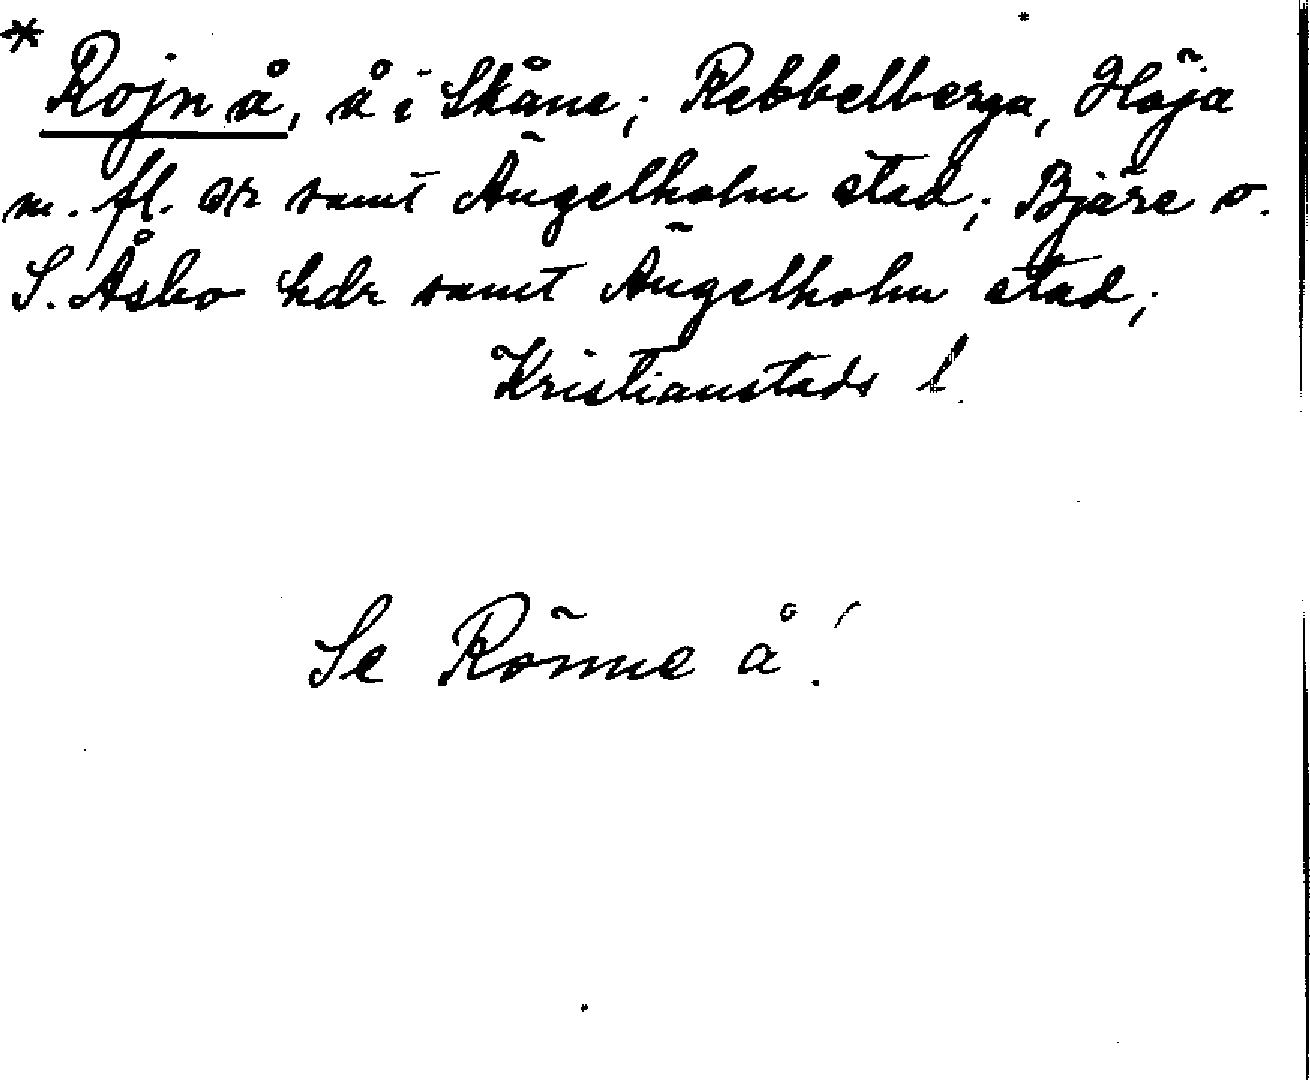 * Rojn å, å i Skåne; Rebbelberga, Höja
m. fl. sr samt Ängelholm stad; Bjäre o.
S. Åsbo hdr samt Ängelholm stad;
Kristianstads l.
Se Rönne å!